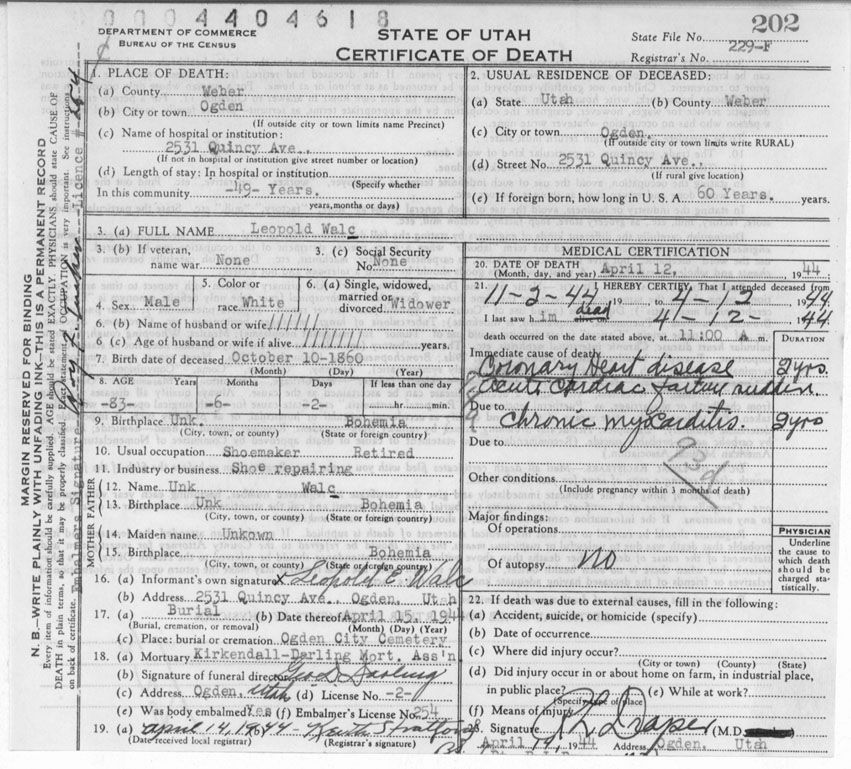 0004404618
DEPARTMENT OF COMMERCE
BUREAU OF THE CENSUS
STATE OF UTAH
CERTIFICATE OF DEATH
202
State File No.
229-F
Registrar's No.
MARGIN RESERVED FOR BINDING
N. B.—WRITE PLAINLY WITH UNFADING INK—THIS IS A PERMANENT RECORD
Every item of information should be carefully supplied. AGE should be stated EXACTLY. PHYSICIANS should state CAUSE OF
DEATH in plain terms, so that it may be properly classified. Exact statement of OCCUPATION is very important. See instructions
on back of certificate. Embalmers Signature Licence # 254
1. PLACE OF DEATH:
(a) County Weber
(b) City or town Ogden
(If outside city or town limits name Precinct)
(c) Name of hospital or institution:
2531 Quincy Ave.,
(If not in hospital or institution give street number or location)
(d) Length of stay: In hospital or institution
(Specify whether
In this community -49- Years.
years, months or days)
2. USUAL RESIDENCE OF DECEASED:
(a) State Utah (b) County Weber
(c) City or town Ogden.
(If outside city or town limits write RURAL)
(d) Street No. 2531 Quincy Ave.,
(If rural give location)
(e) If foreign born, how long in U. S. A. 60 Years. years.
3. (a) FULL NAME Leopold Walc
3. (b) If veteran, name war. None
3. (c) Social Security No. None
4. Sex Male
5. Color or race White
6. (a) Single, widowed, married or divorced Widower
6. (b) Name of husband or wife //////
6 (c) Age of husband or wife if alive ////// years.
7. Birth date of deceased October 10-1860
(Month) (Day) (Year)
8. AGE Years Months Days If less than one day
-83- -6- -2- hr. min.
9. Birthplace Unk. Bohemia
(City, town, or county) (State or foreign country)
10. Usual occupation Shoemaker Retired
11. Industry or business Shoe repairing
FATHER
12. Name Unk Walc
13. Birthplace Unk Bohemia
(City, town, or county) (State or foreign country)
MOTHER
14. Maiden name Unkown
15. Birthplace Bohemia
(City, town, or county) (State or foreign country)
16. (a) Informant's own signature x Leopold E. Walc
(b) Address 2531 Quincy Ave. Ogden, Utah
17. (a) Burial (b) Date thereof April 15, 1944
(Burial, cremation, or removal) (Month) (Day) (Year)
(c) Place: burial or cremation Ogden City Cemetery
18. (a) Mortuary Kirkendall-Darling Mort. Ass'n
(b) Signature of funeral director Geo D Darling
(c) Address Ogden, Utah (d) License No. -2-
(e) Was body embalmed? Yes (f) Embalmer's License No. 254
19. (a) April 14, 1944
(Date received local registrar) (Registrar's signature)
MEDICAL CERTIFICATION
20. DATE OF DEATH
(Month, day, and year) April 12, 1944
21. I HEREBY CERTIFY, That I attended deceased from
11-2-44 19 to 4-12 1944
I last saw him dead 4-12- 44
death occurred on the date stated above, at 11:00 A m.
DURATION
Immediate cause of death
Coronary Heart disease 2yrs.
acute cardiac failure sudden.
Due to Chronic myocarditis. 2yrs
Due to
93d
Other conditions
(Include pregnancy within 3 months of death)
Major findings:
Of operations
Of autopsy No
PHYSICIAN
Underline
the cause to
which death
should be
charged sta-
tistically.
22. If death was due to external causes, fill in the following:
(a) Accident, suicide, or homicide (specify)
(b) Date of occurrence
(c) Where did injury occur?
(City or town) (County) (State)
(d) Did injury occur in or about home on farm, in industrial place,
in public place? (e) While at work?
(Specify type of place)
(f) Means of injury
23. Signature Draper (M.D.
April 1944 Address, Ogden, Utah